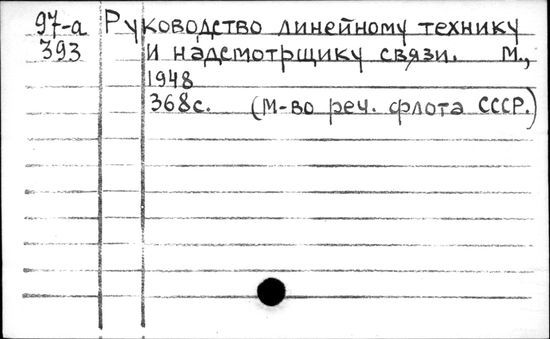 97-а Руководство линейному технику
393 и надсмотрщику связи. М.,
1948
368с. (М-во реч. флота СССР.)